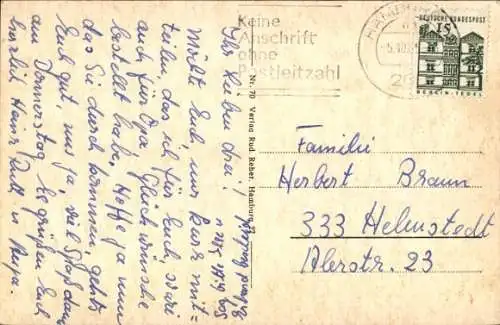 Keine
Anschrift
ohne
Postleitzahl
DEUTSCHE BUNDESPOST
15
BERLIN-TEGEL
Nr. 70 Verlag Rud Reher, Hamburg
Ihr lieben drei!
Möcht Euch nur kurz mit=
teilen, das ich für Euch
auch für Opa Glückwünsche
bestellt habe. Hoffe ja nun
das Sie durch kommen, geht's
Euch gut, uns ja, viel Spaß dann
am Donnerstag. Es grüßen Euch
herzlich Heinz
Familie
Herbert Braun
333 Helmstedt
Alerstr. 23